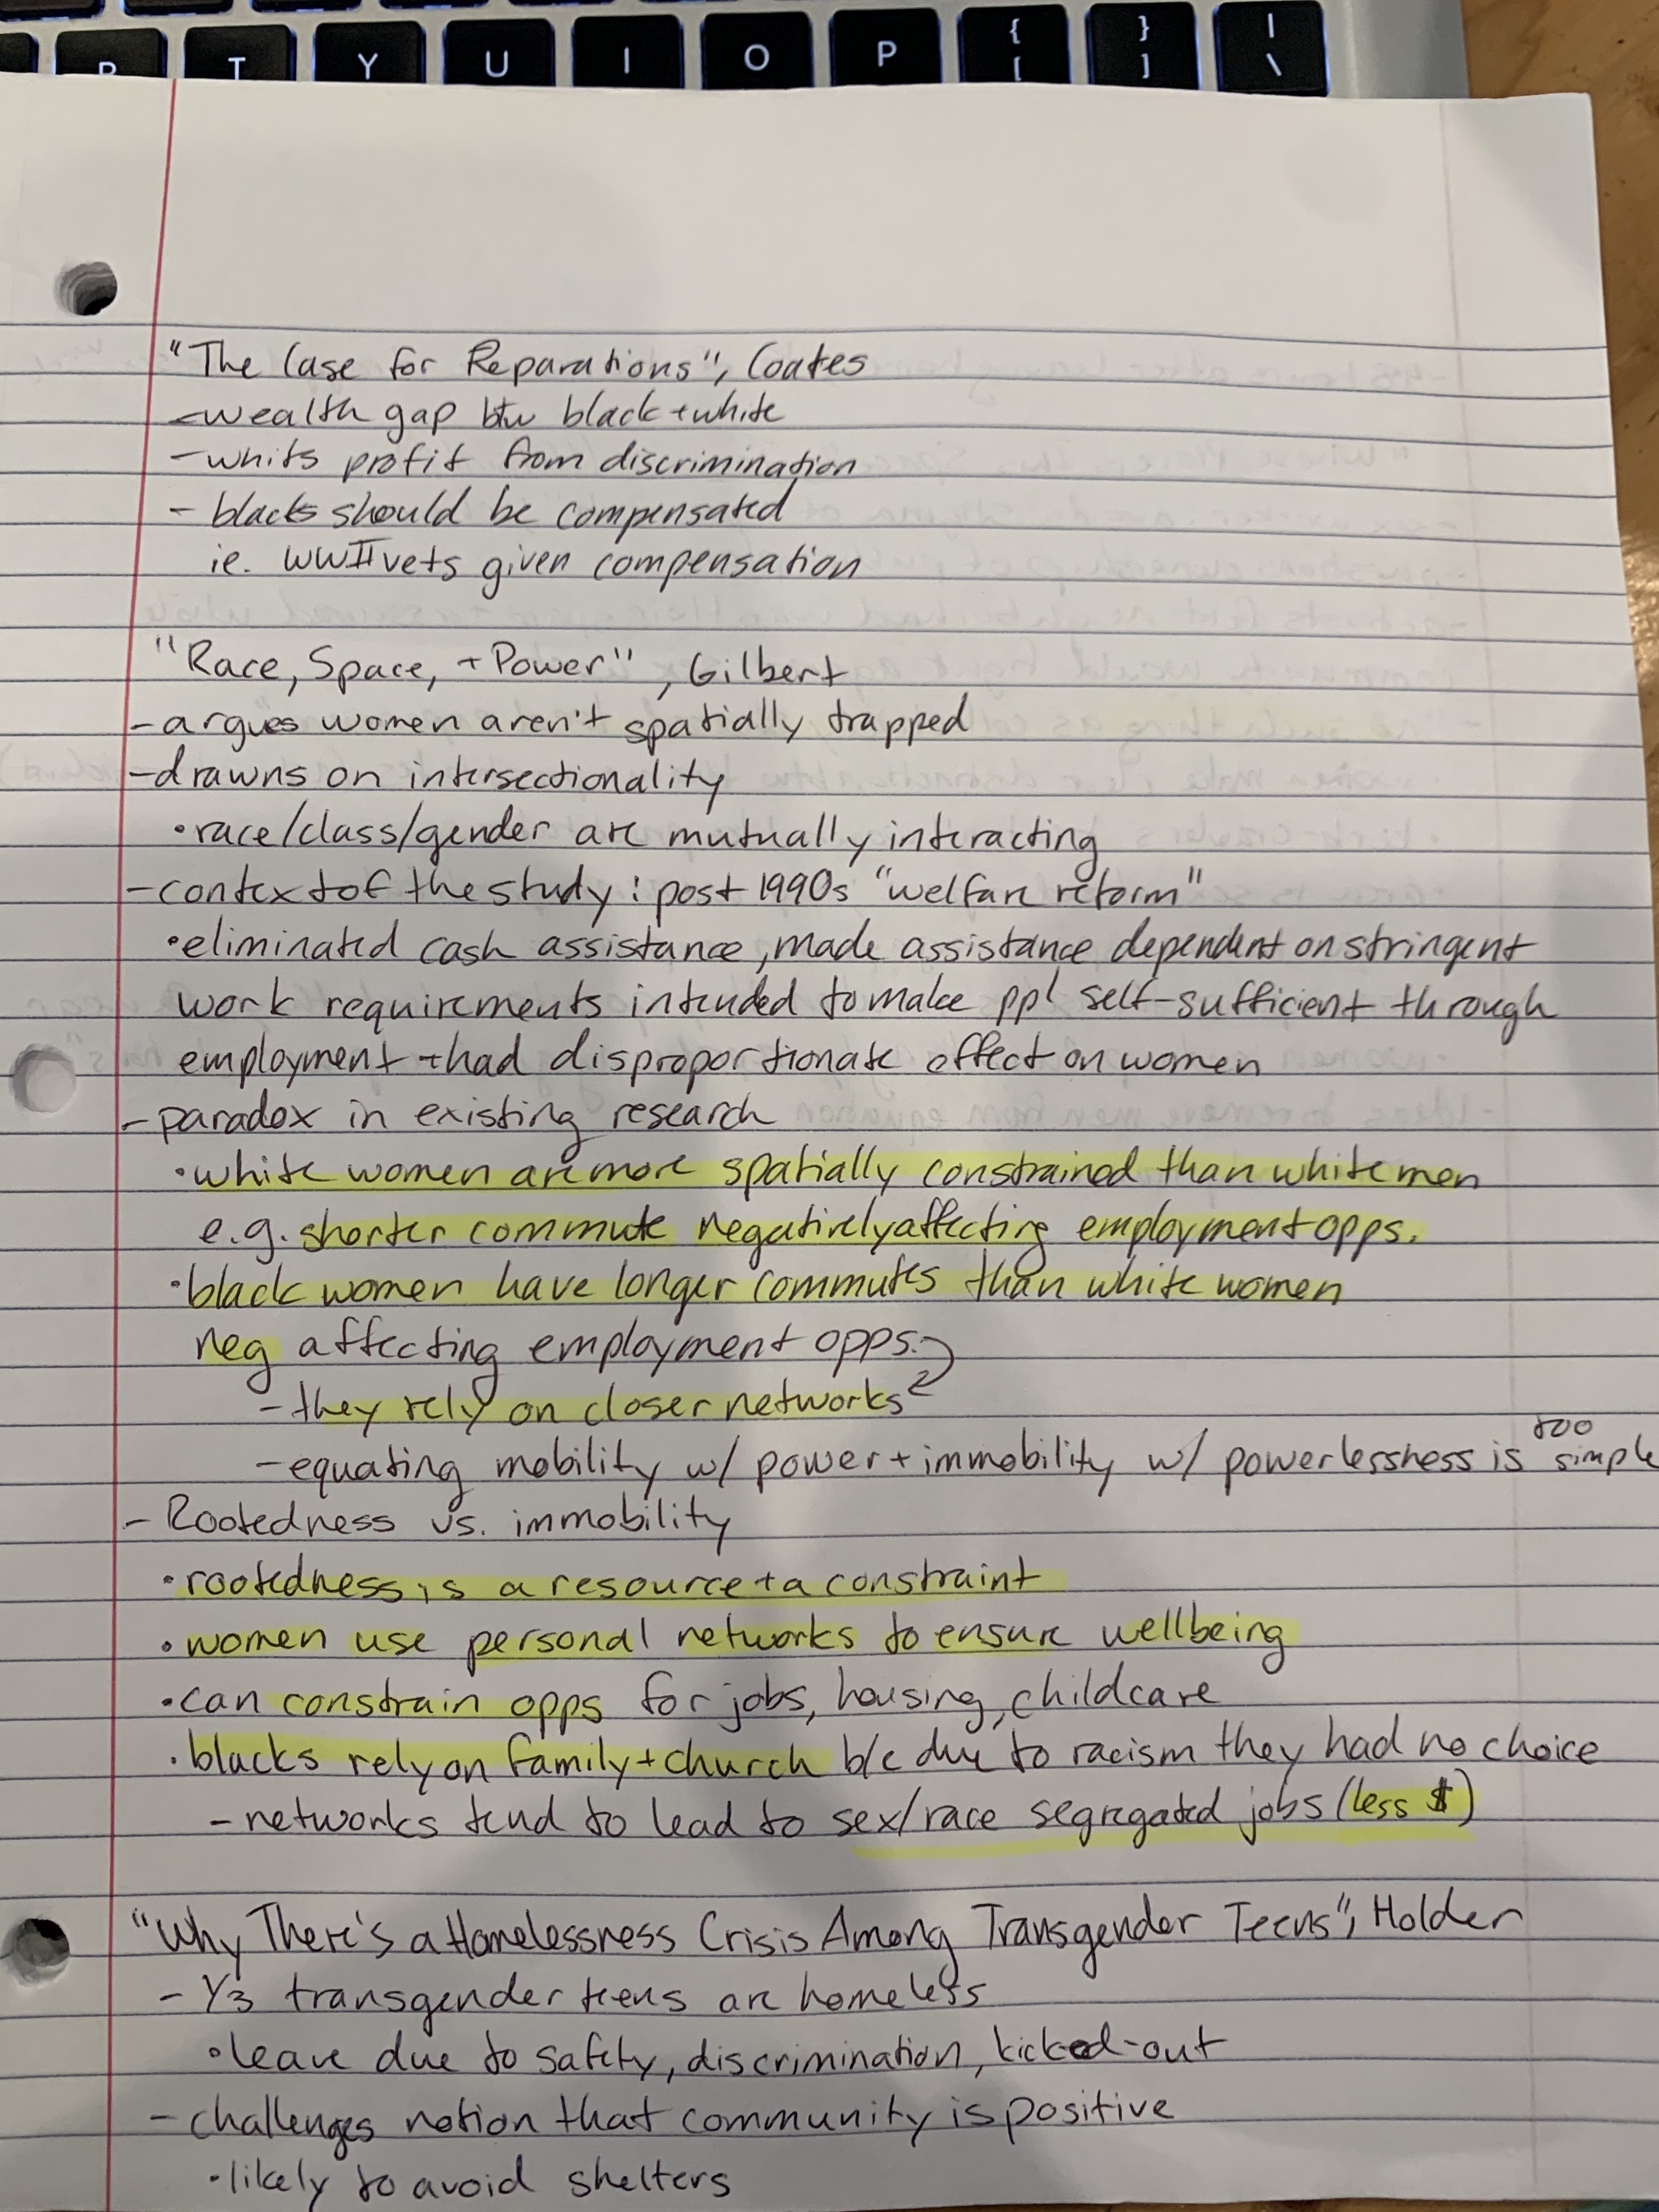 R T Y U I O P { [ } ] | \
"The Case for Reparations", Coates
- wealth gap btw black + white
- whits profit from discrimination
- blacks should be compensated
ie. WWII vets given compensation
"Race, Space, + Power", Gilbert
- argues women aren't spatially trapped
- drawns on intersectionality
• race/class/gender are mutually interacting
- context of the study: post 1990s "welfare reform"
• eliminated cash assistance, made assistance dependent on stringent
work requirements intended to make ppl self-sufficient through
employment + had disproportionate effect on women
- paradox in existing research
• white women are more spatially constrained than white men
e.g. shorter commute negatively affecting employment opps.
• black women have longer commutes than white women
neg affecting employment opps.
- they rely on closer networks
- equating mobility w/ power + immobility w/ powerlessness is too simple
- Rootedness vs. immobility
• rootedness is a resource + a constraint
• women use personal networks to ensure wellbeing
• can constrain opps for jobs, housing, childcare
• blacks rely on family + church b/c due to racism they had no choice
- networks tend to lead to sex/race segregated jobs (less $)
"Why There's a Homelessness Crisis Among Transgender Teens", Holder
- 1/3 transgender teens are homeless
• leave due to safety, discrimination, kicked-out
- challenges notion that community is positive
• likely to avoid shelters